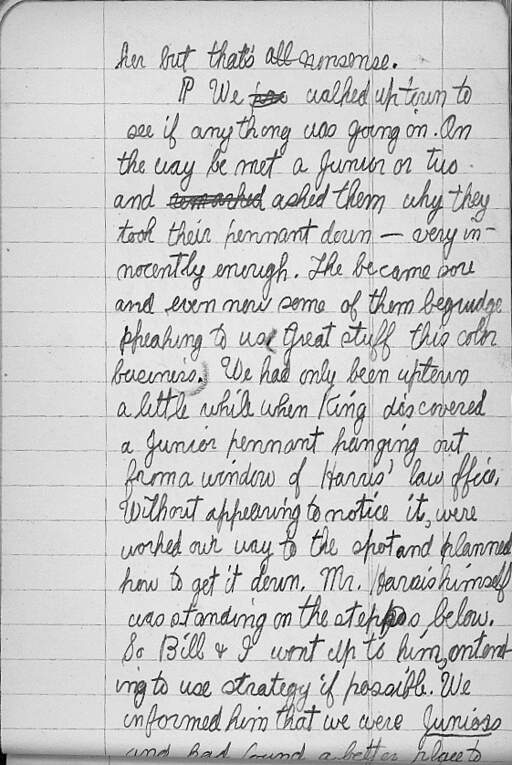 her but that's all nonsense.
¶ We walked up town to
see if any thong was going on. On
the way be met a Junior or two
and remarked asked them why they
took their pennant down — very in-
nocently enough. The became sore
and even now some of them begrudge
speaking to us. Great stuff this color
business. We had only been uptown
a little while when King discovered
a Junior pennant hanging out
from a window of Harris' law office.
Without appearing to notice it, were
worked our way to the spot and planned
how to get it down. Mr. Harris himself
was standing on the steppos, below.
So Bill & I went up to him, intend-
ing to use strategy if possible. We
informed him that we were Juniors
and had found a better place to